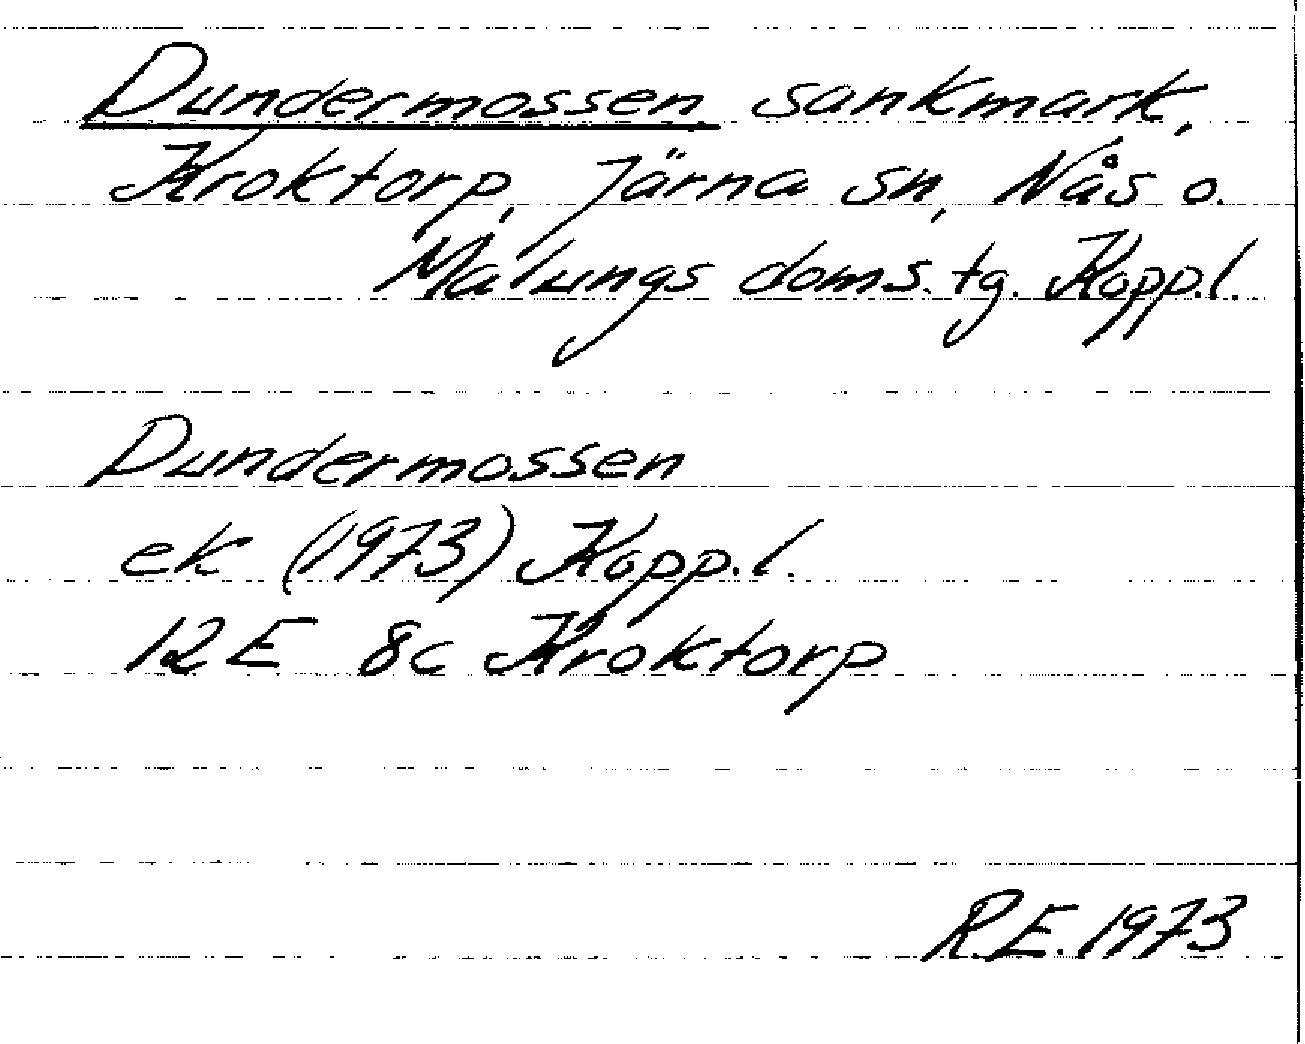 Dundermossen sankmark,
Kroktorp, Järna sn, Nås o.
Malungs doms. tg. Kopp.l.
Dundermossen
ek (1973) Kopp.l.
12E 8c Kroktorp
R.E. 1973